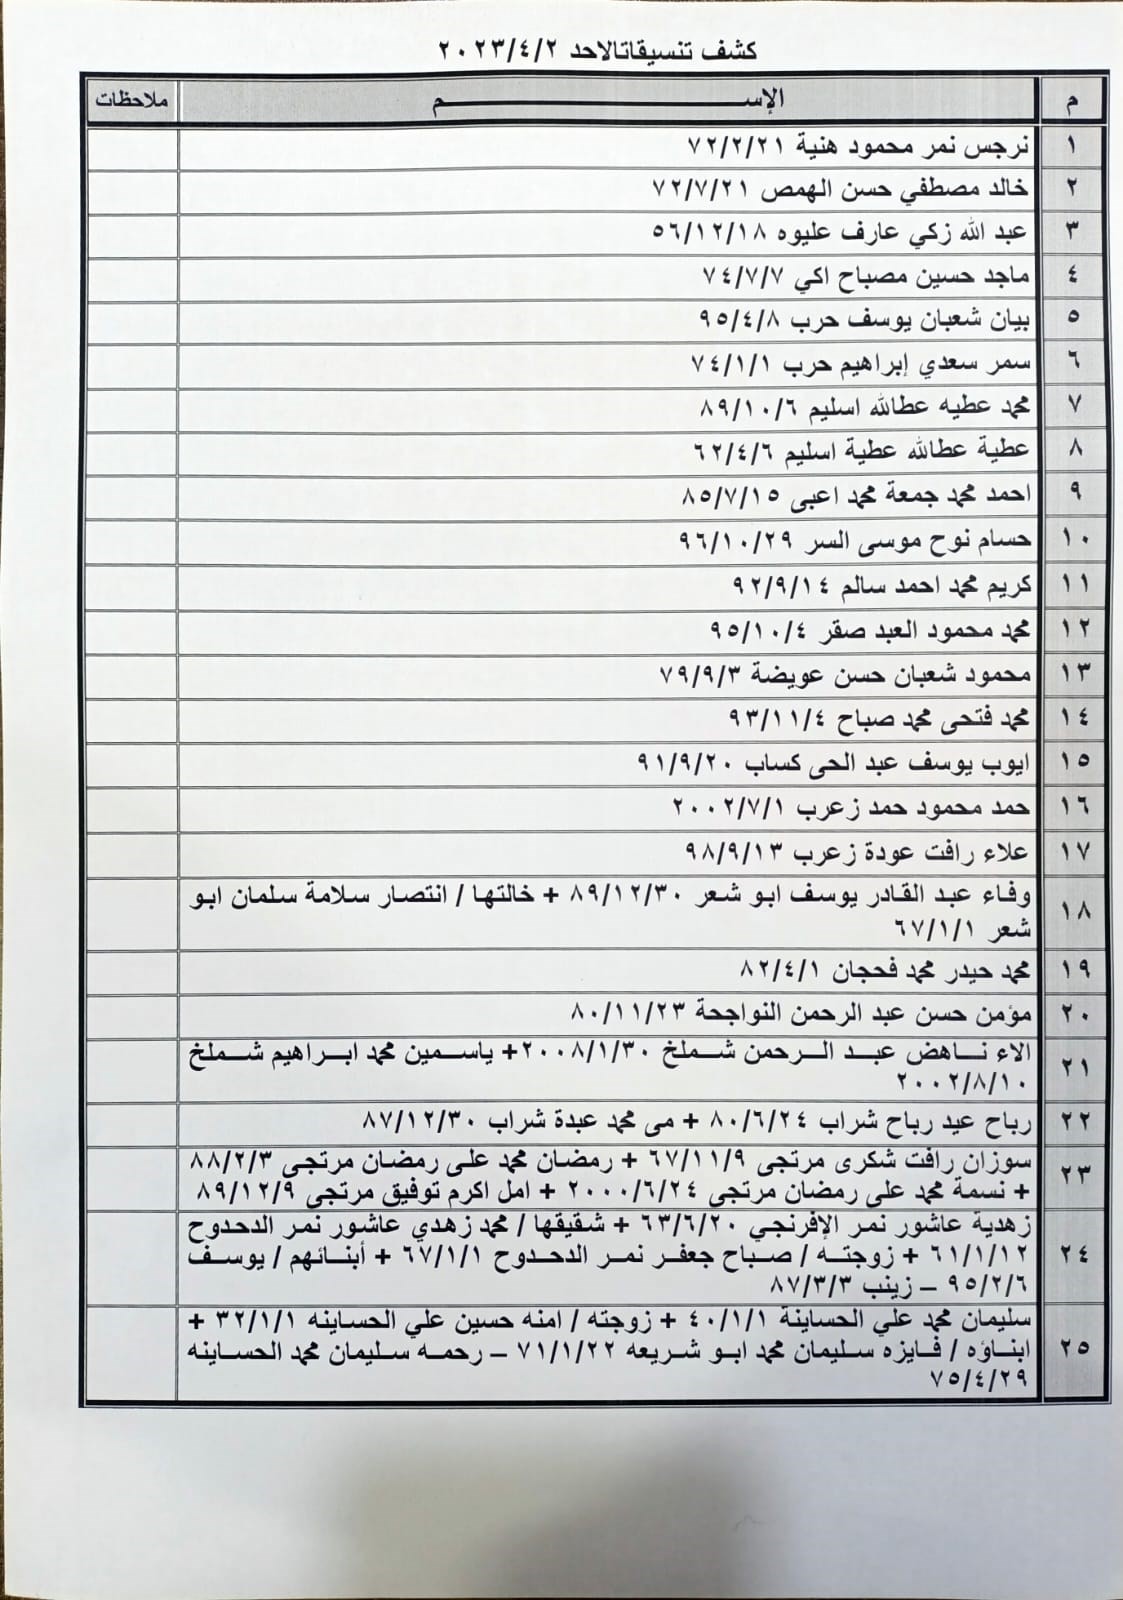 كشف تنسيقاتالاحد ٢٠٢٣/٤/٢
م الإســـــم ملاحظات
١ نرجس نمر محمود هنية ٧٢/٢/٢١
٢ خالد مصطفي حسن الهمص ٧٢/٧/٢١
٣ عبد الله زكي عارف عليوه ٥٦/١٢/١٨
٤ ماجد حسين مصباح اكي ٧٤/٧/٧
٥ بيان شعبان يوسف حرب ٩٥/٤/٨
٦ سمر سعدي إبراهيم حرب ٧٤/١/١
٧ محمد عطيه عطالله اسليم ٨٩/١٠/٦
٨ عطية عطالله عطية اسليم ٦٢/٤/٦
٩ احمد محمد جمعة محمد اعبى ٨٥/٧/١٥
١٠ حسام نوح موسى السر ٩٦/١٠/٢٩
١١ كريم محمد احمد سالم ٩٢/٩/١٤
١٢ محمد محمود العبد صقر ٩٥/١٠/٤
١٣ محمود شعبان حسن عويضة ٧٩/٩/٣
١٤ محمد فتحى محمد صباح ٩٣/١١/٤
١٥ ايوب يوسف عبد الحى كساب ٩١/٩/٢٠
١٦ حمد محمود حمد زعرب ٢٠٠٢/٧/١
١٧ علاء رافت عودة زعرب ٩٨/٩/١٣
١٨ وفاء عبد القادر يوسف ابو شعر ٨٩/١٢/٣٠ + خالتها / انتصار سلامة سلمان ابو
شعر ٦٧/١/١
١٩ محمد حيدر محمد فحجان ٨٢/٤/١
٢٠ مؤمن حسن عبد الرحمن النواجحة ٨٠/١١/٢٣
٢١ الاء ناهض عبد الرحمن شملخ ٢٠٠٨/١/٣٠+ ياسمين محمد ابراهيم شملخ
٢٠٠٢/٨/١٠
٢٢ رباح عيد رباح شراب ٨٠/٦/٢٤ + مى محمد عبدة شراب ٨٧/١٢/٣٠
٢٣ سوزان رافت شكرى مرتجى ٦٧/١١/٩ + رمضان محمد على رمضان مرتجى ٨٨/٢/٣
+ نسمة محمد على رمضان مرتجى ٢٠٠٠/٦/٢٤ + امل اكرم توفيق مرتجى ٨٩/١٢/٩
٢٤ زهدية عاشور نمر الإفرنجي ٦٣/٦/٢٠ + شقيقها / محمد زهدي عاشور نمر الدحدوح
٦١/١/١٢ + زوجته / صباح جعفر نمر الدحدوح ٦٧/١/١ + أبنائهم / يوسف
٩٥/٢/٦ – زينب ٨٧/٣/٣
٢٥ سليمان محمد علي الحساينة ٤٠/١/١ + زوجته / امنه حسين علي الحساينه ٣٢/١/١ +
ابناؤه / فايزه سليمان محمد ابو شريعه ٧١/١/٢٢ – رحمه سليمان محمد الحساينه
٧٥/٤/٢٩